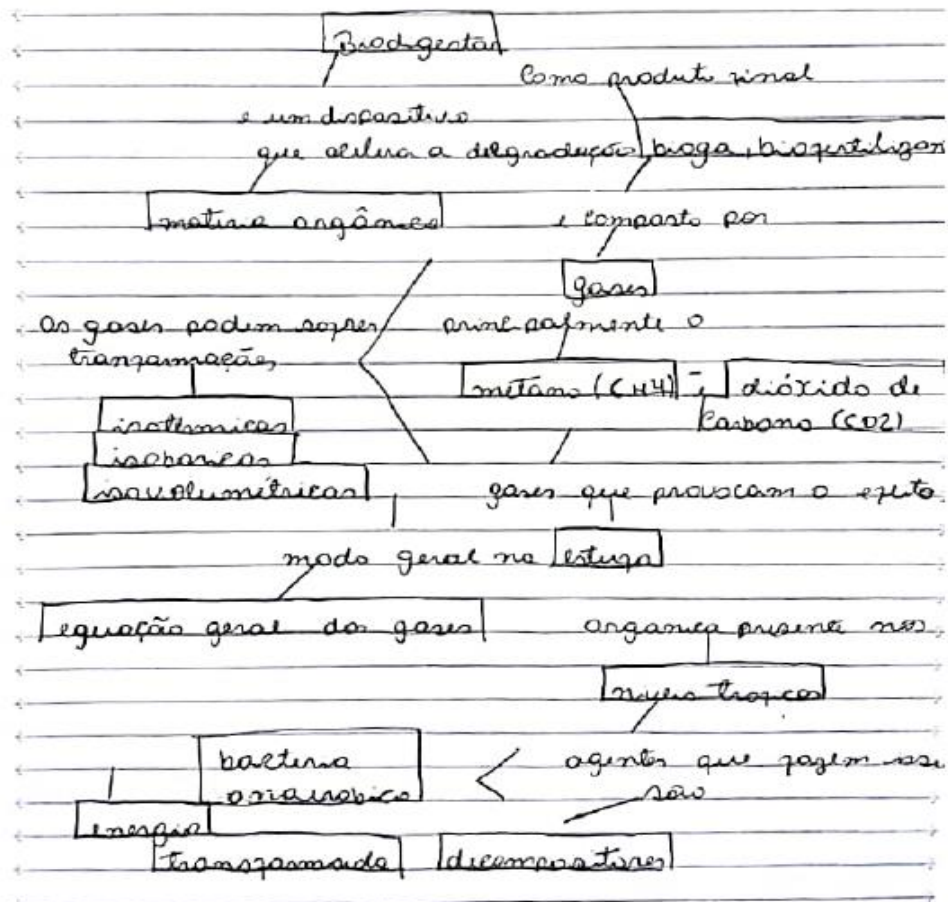 Biodigestão
Como produto final
e um dispositivo
que acelera a delgradação bioga, biofertilizan
materia orgânica e composto por
gases
Os gases podem sofrer principalmente o
tranformações
metano (CH4) e dióxido de
Carbono (CO2)
isotérmicas
isobaricas
isovolumétricas gases que provocam o efeito
modo geral na estufa
equação geral dos gases organica presente nos
niveis troficos
bacteria agentes que fazem
anaerobico são
energia
transformada decompositores